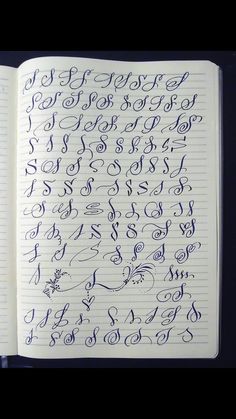 S S S S S S S S S
S S S S S S S S S
S S S S S S S S
S S S S S S S S S
S S S S S S S S S
S S S S S S S S S
S S S S S S S S
S S S S S S S S
S S S S S S S
S S SSSS
S
S S S S S S S S
S S S S S S S S S